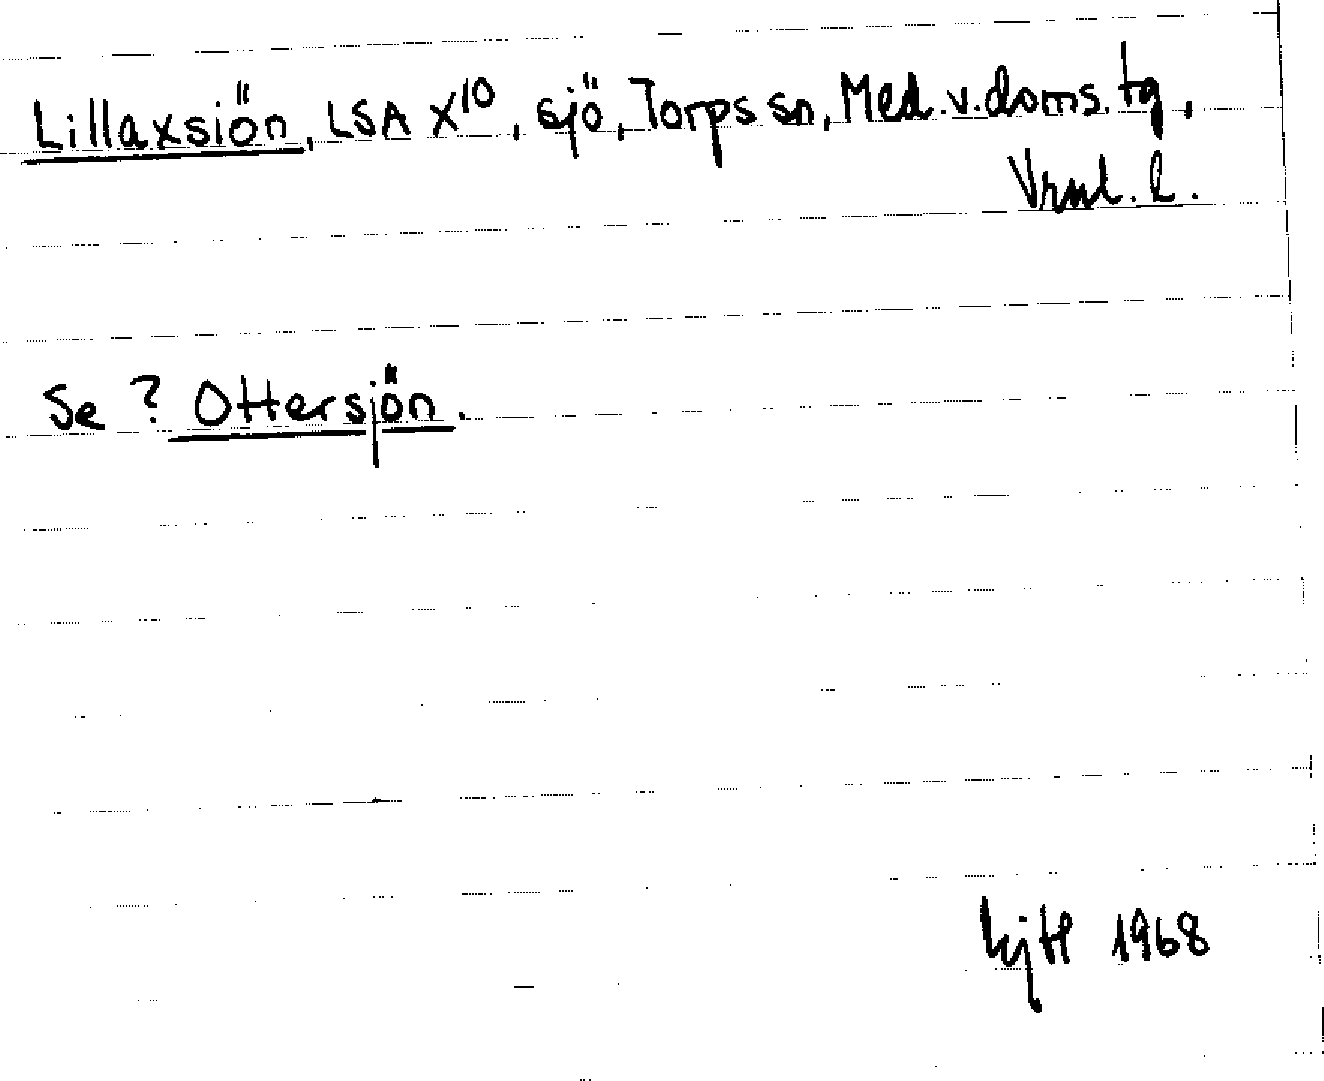 Lillaxsiön, LSA X10, sjö, Torps sn, Med.v.doms.tg,
Vrml. l.
Se ? Ottersjön.
1968